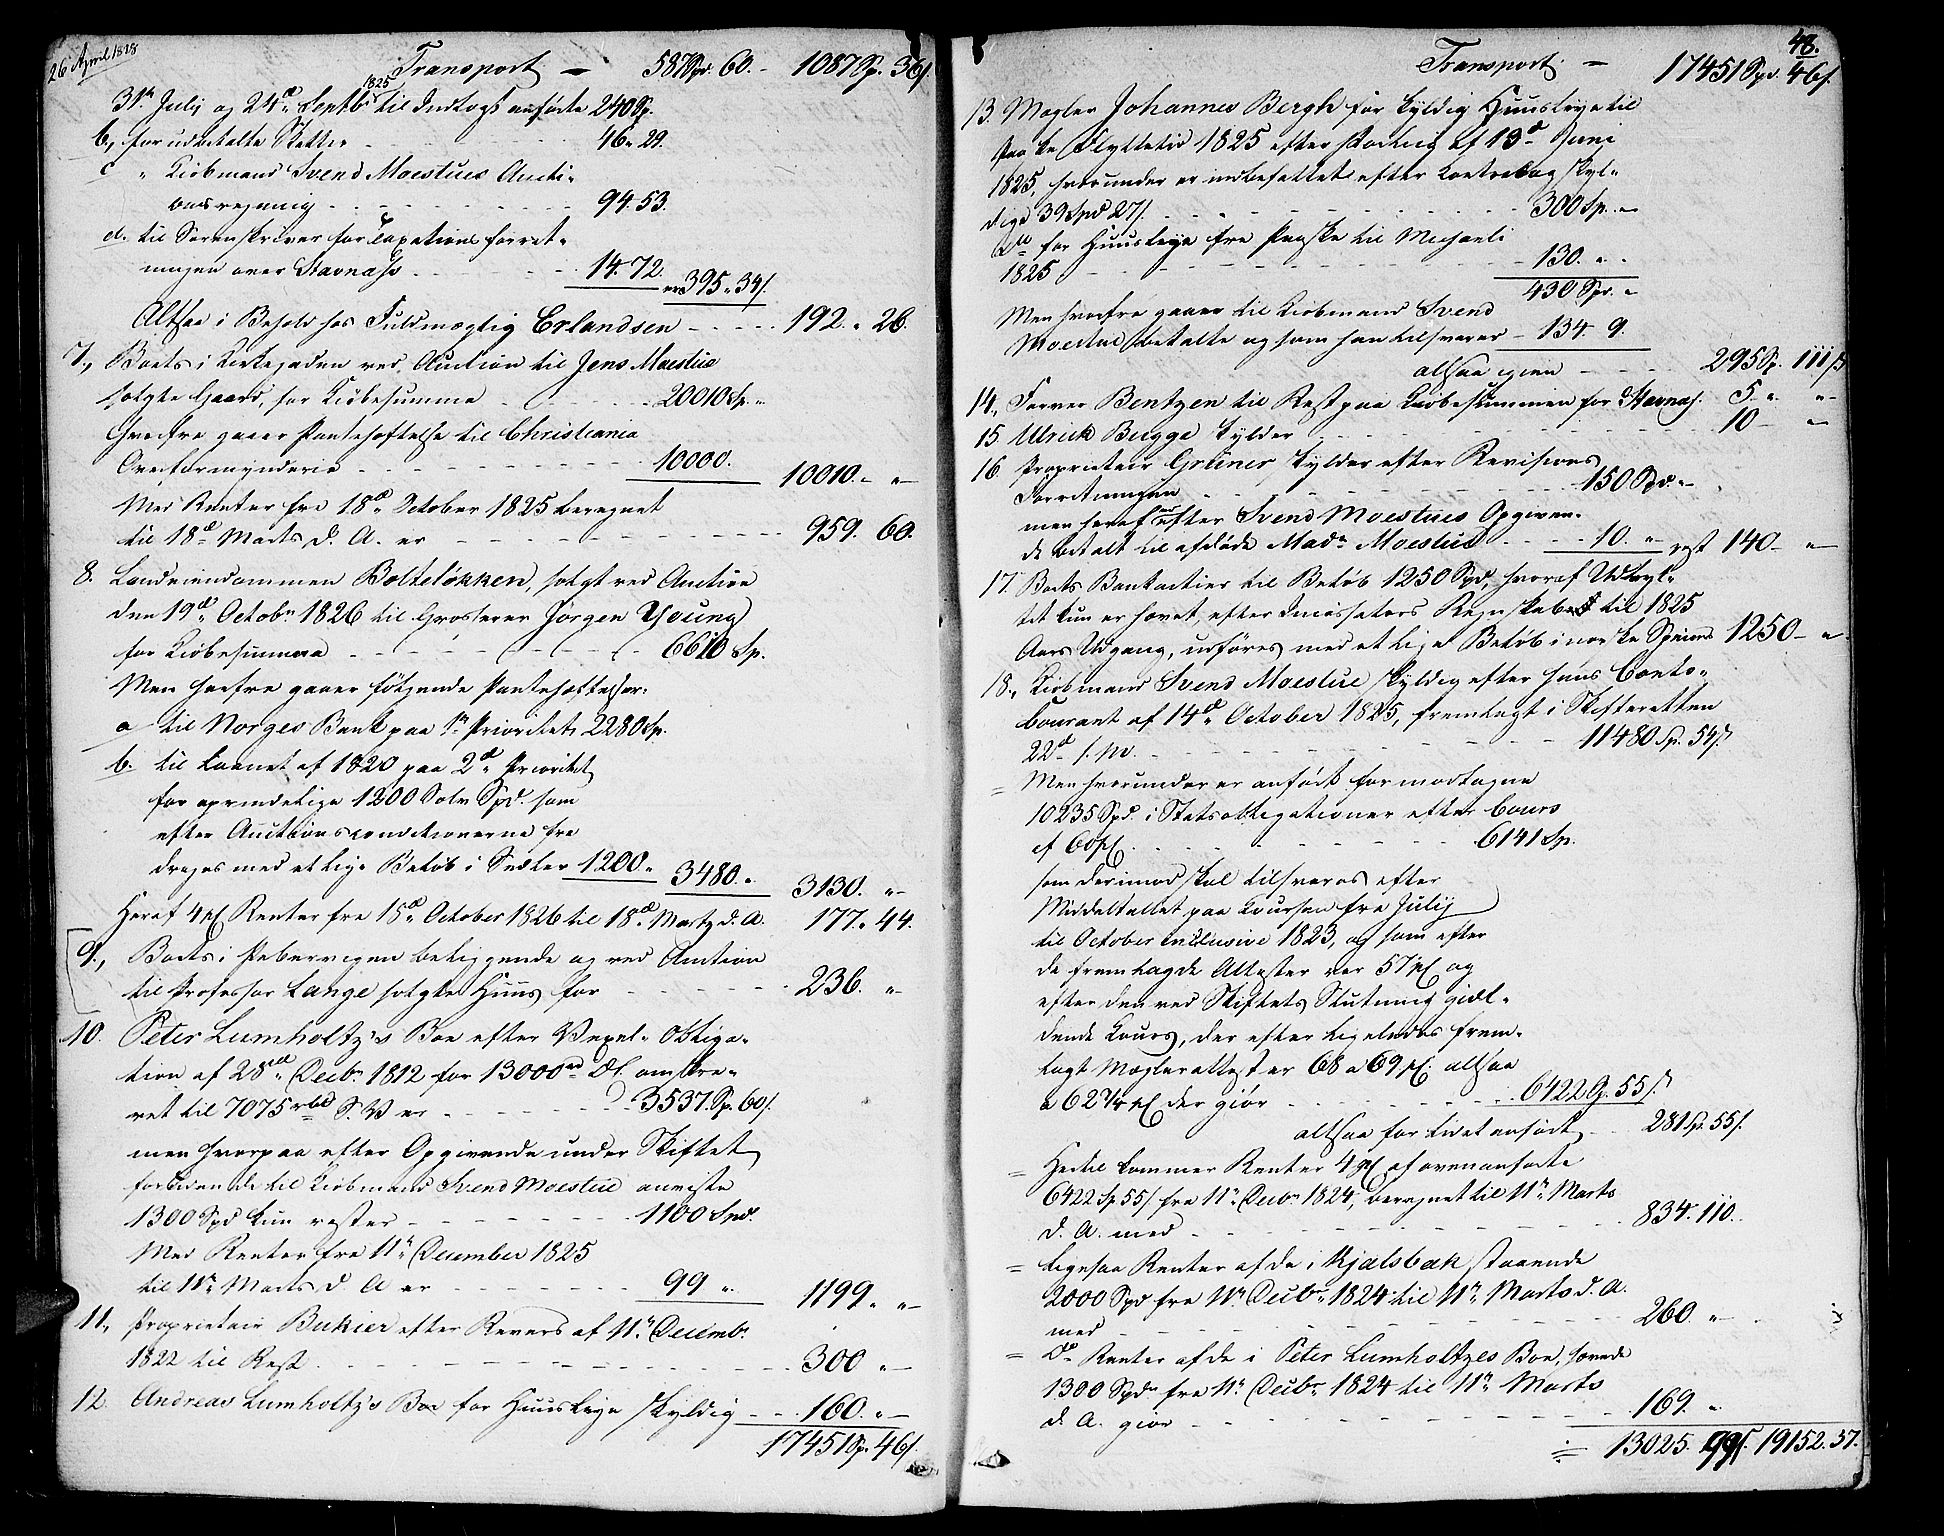 26 April 1828
Transport – 587 Spd. 60. – 1087 Sp. 36 s.
1825
31te Julij og 24de Septbr til Indtægt anførte 240 Sp.
b, for udbetalte Skatter - - - 46 " 29.
c " Kiøbmand Svend Moestues Aucti-
onsregning - - - 94. 53.
d. til Sorenskriver for Taxations forret-
ningen over Stavnæs - - - 14. 72.
er 395 " 34 s.
Altsaa i Behold hos Fuldmægtig Erlandsen - - - 192. " 26.
7., Boets i Kirkegaden ved Auction til Jens Moestue
solgte Gaard, for Kiøbesumma - - - 20010 Sp. "
Hvorfra gaaer Pantehæftelse til Christiania
Overformynderie - - - 10000.
10010. " "
Med Renter fra 18de October 1825 beregnet
til 18de Marts d. A. er - - - 959. 60.
8. Landeiendommen Bolteløkken, solgt ved Auction
den 19de Octobr 1826 til Grosserer Jørgen Young
for Kiøbesumma - - - 6610 Sp.
Men herfra gaaer følgende Pantehæftelser:
a til Norges Bank paa 1ste Prioritet 2280 Sp.
b. til Laanet af 1820 paa 2den Prioritet
for oprindelige 1200 Sølv Spd. som
efter Auctionsconditionerne fra
drages med et lige Beløb i Sedler 1200. "
3480. " 3130. " –
Heraf 4 pC Renter fra 18de October 1826 til 18de Marts d. A. 177. " 44.
9., Boets i Pebervigen beliggende og ved Auction
til Professor Lange solgte Huus for - - - 236. " –
10. Peter Lumholtz's Boe efter Vexel-Obliga-
tion af 28de Decbr 1812 for 13000 rd DC. omskre-
vet til 7075 rbd S.V er - - - 3537. Sp. 60 s.
men hvorpaa efter Opgivende under Skiftet
forbigaaende til Kiøbmand Svend Moestue anviste
1300 Spd kun rester - - - 1100 Spd.
Med Renter fra 11te December 1825
til 11te Marts d. A er - - - 99 ".
1199. " –
11., Proprietair Bukier efter Revers af 11te Decembr
1822 til Rest - - - 300 " –
12. Andreas Lumholtz's Boe for Huusleye skyldig - - 160. " –
17451 Sp. 46 s.
48.
Transport – 17451 Spd. 46 s.
13. Mægler Johannes Bergh for skyldig Huusleye til
Paaske Flyttetid 1825 efter Forlig af 13de Juni
1825, hvorunder er indbefattet efter Contrabog skyl-
dige 39 Spd 27 s. - - - 300 Sp. " –
do for Huusleye fra Paaske til Michaeli
1825 - - - 130. " "
430 Spd. "
Men hvorfra gaaer til Kiøbmand Svend
Moestue betalte og som han tilsvarer – 134. 9.
altsaa igien - - - 295 Sp. 111 s
14., Farver Bentzen til Rest paa Kiøbesummen for Stavnæs. 5. " " –
15. Ulrick Bugge skylder - - - 10 – " –
16. Proprietair Grüner skylder efter Revisions
Forretningen - - - 150 Spd. " –
men heraf er efter Svend Moestues Opgiven-
de betalt til afdøde Madm Moestue - - - 10. " – rest 140 – " –
17. Boets Bankactier til Beløb 1250 Spd, hvoraf Udbyt-
tet kun er hævet efter Incassators Regnskaber til 1825
Aars Udgang, udføres med et lige Beløb i norske Species 1250 – "
18., Kiøbmand Svend Moestue skyldig efter hans Conto-
Courant af 14de October 1825, fremlagt i Skifteretten
22de s. M. - - - 11480 Sp. 54 s.
= Men hvorunder er anført for modtagne
10235 Spd. i Statsobligationer efter Cours
af 60 pC. - - - 6141 Sp.
som derimod skal tilsvares efter
Middeltallet paa Coursen fra Julij
til October inclusive 1823, og som efter
de fremlagde Attester var 57 pC og
efter den ved Skiftets Slutning giæl-
dende Cours, der efter ligeledes frem-
lagt Mægler attest er 68 a 69 pC. altsaa
a 62 3/4 pC der giør - - - 6422 Sp. 55 s.
altsaa for lidet anført - - 281 Sp. 55 s.
= Hertil kommer Renter 4 pC af ovenanførte
6422 Sp 55 s fra 11te Decbr 1824, beregnet til 11te Marts
d. A. med - - - 834. 110.
= Ligesaa Renter af de i Kjelsbæk staaende
2000 Spd fra 11te Decbr 1824 til 11te Marts d. A.
med - - - 260. " –
= do Renter af de i Peter Lumholtzes Boe, havede
1300 Spd fra 11te Decbr 1824 til 11te Marts
d. A. giør - - - 169. "
13025. 99 s. 19152. 37.